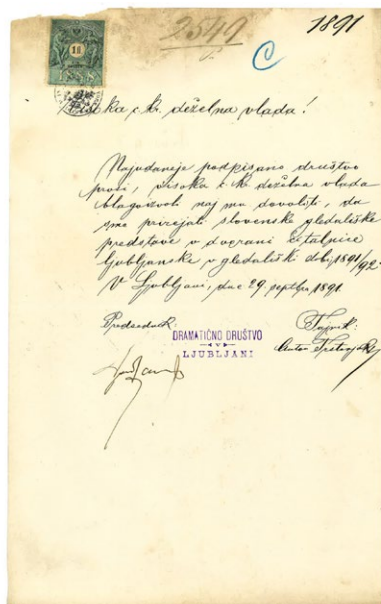 2549
1891
C
Visoka c. kr. deželna vlada!
Najudaneje podpisano društvo
prosi, visoka c. kr. deželna vlada
blagoizvoli naj mu dovoliti, da
sme prirejati slovenske gledališke
predstave v dvorani čitalnice
ljubljanske v gledališki dobi 1891/92.
V Ljubljani, dne 29. septbra 1891.
Predsednik:
Tajnik:
DRAMATIČNO DRUŠTVO
V
LJUBLJANI
Anton Trstenjak